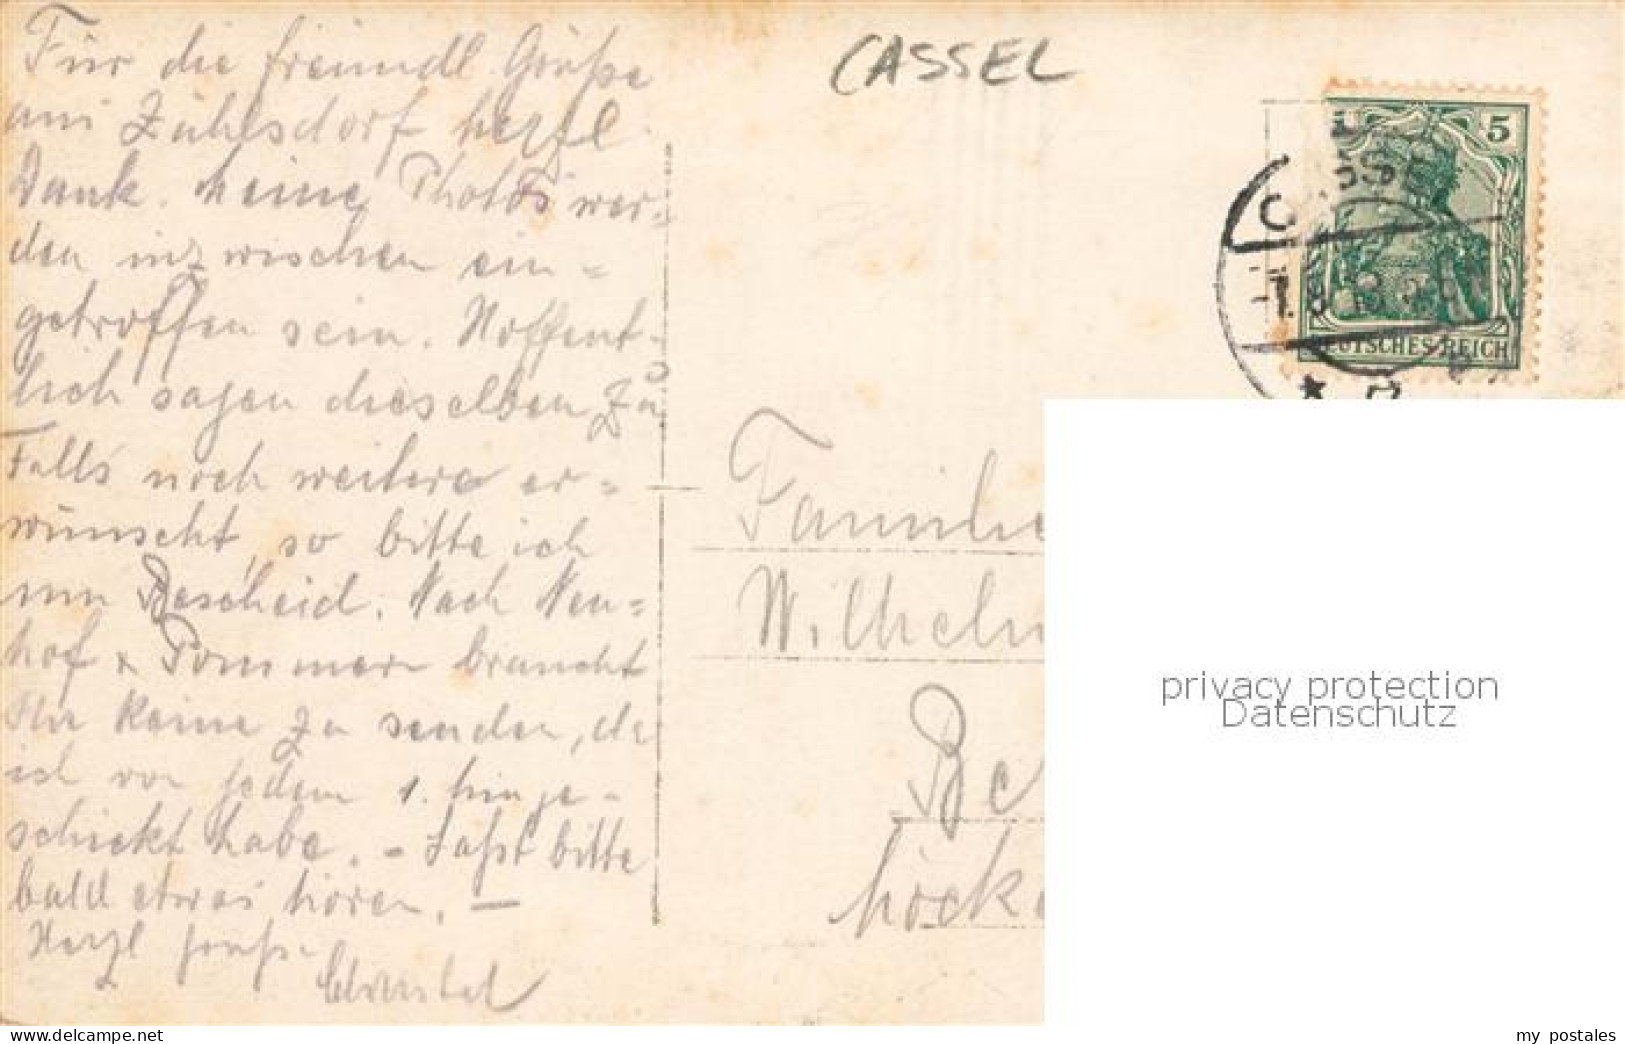 Für die freundl. Grüße
aus Zühlsdorf herzl.
Dank. Meine Photos wer-
den inzwischen ein=
getroffen sein. Hoffent-
lich sagen dieselben zu
Falls noch weitere er=
wünscht, so bitte ich
um Bescheid. Nach Neu=
hof & Pommern braucht
Ihr keine zu senden, da
ich von jedem 1. hinge-
schickt habe. – Laßt bitte
bald etwas hören. –
Herzl Grüße
CASSEL
5
CASSEL
DEUTSCHES REICH
Familie
Wilhelm
Be
höck
privacy protection
Datenschutz
delcampe.net
my_postales